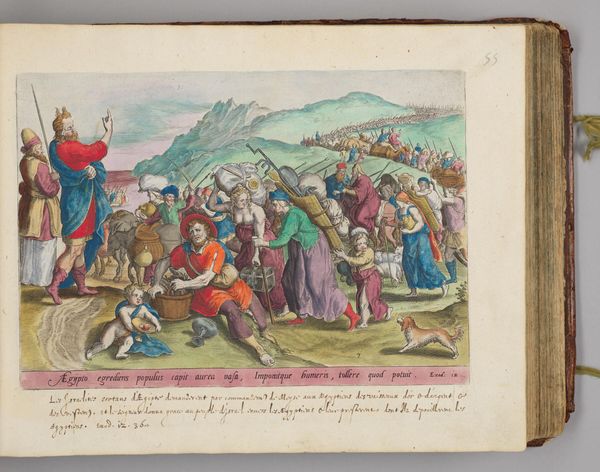 55
Ægypto egrediens populus capit aurea vasa, Imponitque humeris, tollere quod potuit. Exod: 12.
Les Israelites sortans d'Egipte demanderent par commandem^t de Moyse aux Egyptiens des vaisseaux d'or & d'argent &
des vestem^s. et le seigneur donna grace au peuple d'Israel envers les Egyptiens & leur presterent: dont ilz despouillerent les
Egyptiens. Exod. 12. 36.